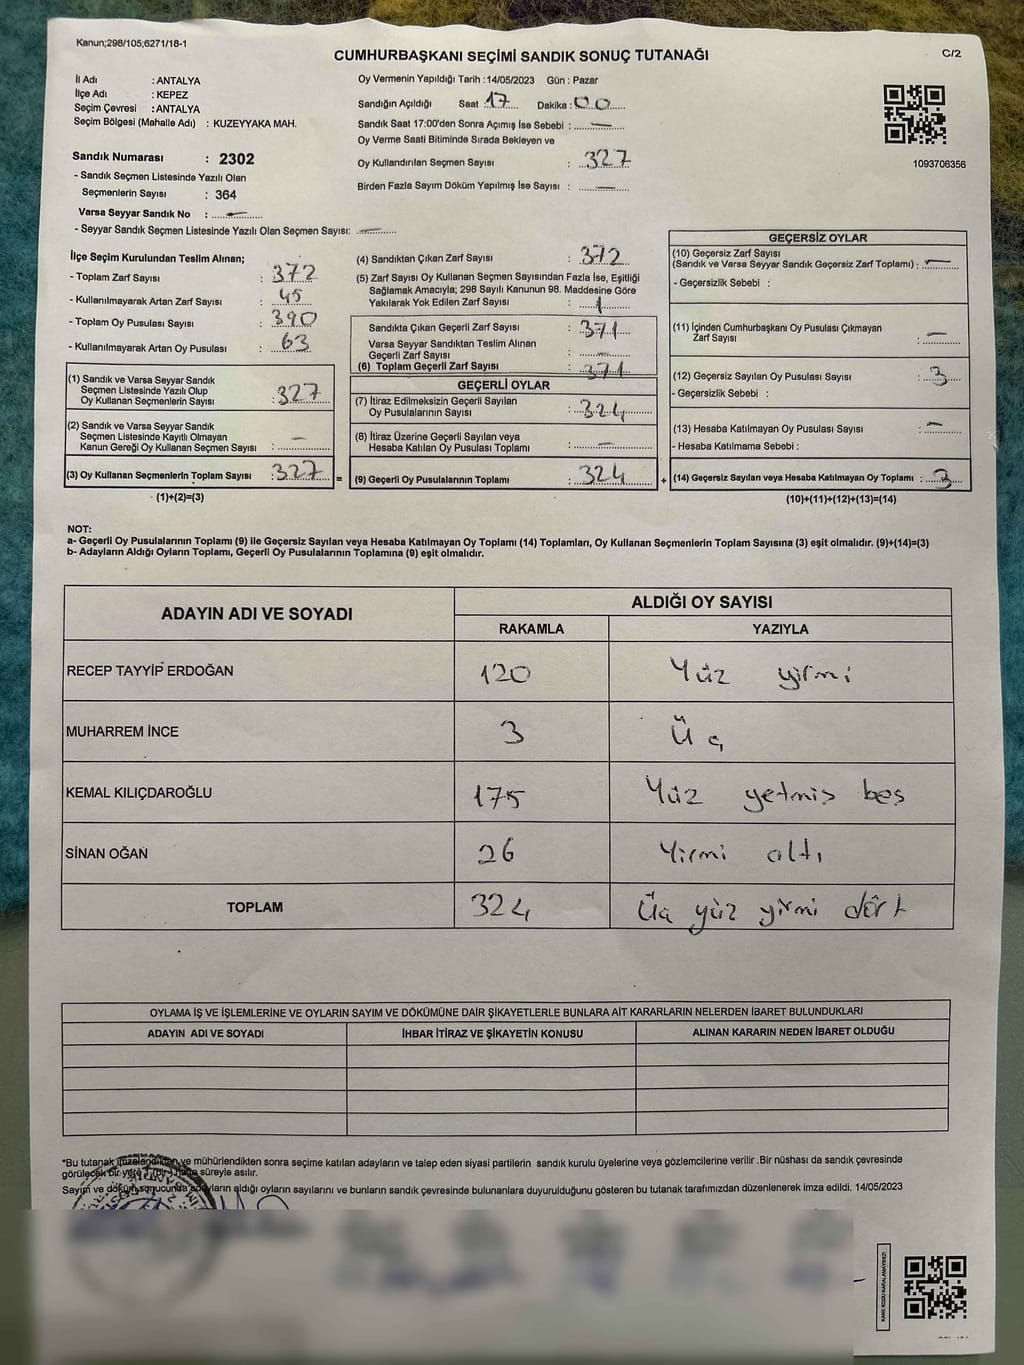 Kanun;298/105;6271/18-1
CUMHURBAŞKANI SEÇİMİ SANDIK SONUÇ TUTANAĞI
C/2
İl Adı : ANTALYA
İlçe Adı : KEPEZ
Seçim Çevresi : ANTALYA
Seçim Bölgesi (Mahalle Adı) : KUZEYYAKA MAH.
Sandık Numarası : 2302
- Sandık Seçmen Listesinde Yazılı Olan
Seçmenlerin Sayısı : 364
Varsa Seyyar Sandık No : —
- Seyyar Sandık Seçmen Listesinde Yazılı Olan Seçmen Sayısı: —
Oy Vermenin Yapıldığı Tarih :14/05/2023 Gün : Pazar
Sandığın Açıldığı Saat :17 Dakika :00
Sandık Saat 17:00'den Sonra Açımış İse Sebebi : —
Oy Verme Saati Bitiminde Sırada Bekleyen ve
Oy Kullandırılan Seçmen Sayısı : 327
Birden Fazla Sayım Döküm Yapılmış İse Sayısı : —
1093706356
İlçe Seçim Kurulundan Teslim Alınan;
- Toplam Zarf Sayısı : 372
- Kullanılmayarak Artan Zarf Sayısı : 45
- Toplam Oy Pusulası Sayısı : 390
- Kullanılmayarak Artan Oy Pusulası : 63
(1) Sandık ve Varsa Seyyar Sandık
Seçmen Listesinde Yazılı Olup
Oy Kullanan Seçmenlerin Sayısı : 327
(2) Sandık ve Varsa Seyyar Sandık
Seçmen Listesinde Kayıtlı Olmayan
Kanun Gereği Oy Kullanan Seçmen Sayısı : —
(3) Oy Kullanan Seçmenlerin Toplam Sayısı : 327
(1)+(2)=(3)
=
(4) Sandıktan Çıkan Zarf Sayısı : 372
(5) Zarf Sayısı Oy Kullanan Seçmen Sayısından Fazla İse, Eşitliği
Sağlamak Amacıyla; 298 Sayılı Kanunun 98. Maddesine Göre
Yakılarak Yok Edilen Zarf Sayısı : 1
Sandıkta Çıkan Geçerli Zarf Sayısı : 371
Varsa Seyyar Sandıktan Teslim Alınan
Geçerli Zarf Sayısı : —
(6) Toplam Geçerli Zarf Sayısı : 371
GEÇERLİ OYLAR
(7) İtiraz Edilmeksizin Geçerli Sayılan
Oy Pusulalarının Sayısı : 324
(8) İtiraz Üzerine Geçerli Sayılan veya
Hesaba Katılan Oy Pusulası Toplamı : —
(9) Geçerli Oy Pusulalarının Toplamı : 324
+
GEÇERSİZ OYLAR
(10) Geçersiz Zarf Sayısı
(Sandık ve Varsa Seyyar Sandık Geçersiz Zarf Toplamı) : —
- Geçersizlik Sebebi :
(11) İçinden Cumhurbaşkanı Oy Pusulası Çıkmayan
Zarf Sayısı : —
(12) Geçersiz Sayılan Oy Pusulası Sayısı : 3
- Geçersizlik Sebebi :
(13) Hesaba Katılmayan Oy Pusulası Sayısı : —
- Hesaba Katılmama Sebebi :
(14) Geçersiz Sayılan veya Hesaba Katılmayan Oy Toplamı : 3
(10)+(11)+(12)+(13)=(14)
NOT:
a- Geçerli Oy Pusulalarının Toplamı (9) ile Geçersiz Sayılan veya Hesaba Katılmayan Oy Toplamı (14) Toplamları, Oy Kullanan Seçmenlerin Toplam Sayısına (3) eşit olmalıdır. (9)+(14)=(3)
b- Adayların Aldığı Oyların Toplamı, Geçerli Oy Pusulalarının Toplamına (9) eşit olmalıdır.
ADAYIN ADI VE SOYADI
ALDIĞI OY SAYISI
RAKAMLA YAZIYLA
RECEP TAYYİP ERDOĞAN 120 Yüz yirmi
MUHARREM İNCE 3 Üç
KEMAL KILIÇDAROĞLU 175 Yüz yetmiş beş
SİNAN OĞAN 26 Yirmi altı
TOPLAM 324 Üç yüz yirmi dört
OYLAMA İŞ VE İŞLEMLERİNE VE OYLARIN SAYIM VE DÖKÜMÜNE DAİR ŞİKAYETLERLE BUNLARA AİT KARARLARIN NELERDEN İBARET BULUNDUKLARI
ADAYIN ADI VE SOYADI İHBAR İTİRAZ VE ŞİKAYETİN KONUSU ALINAN KARARIN NEDEN İBARET OLDUĞU
*Bu tutanak imzalandıktan ve mühürlendikten sonra seçime katılan adayların ve talep eden siyasi partilerin sandık kurulu üyelerine veya gözlemcilerine verilir .Bir nüshası da sandık çevresinde
görülecek bir yere 1 (bir) hafta süreyle asılır.
Sayım ve döküm sonucunda adayların aldığı oyların sayılarını ve bunların sandık çevresinde bulunanlara duyurulduğunu gösteren bu tutanak tarafımızdan düzenlenerek imza edildi. 14/05/2023